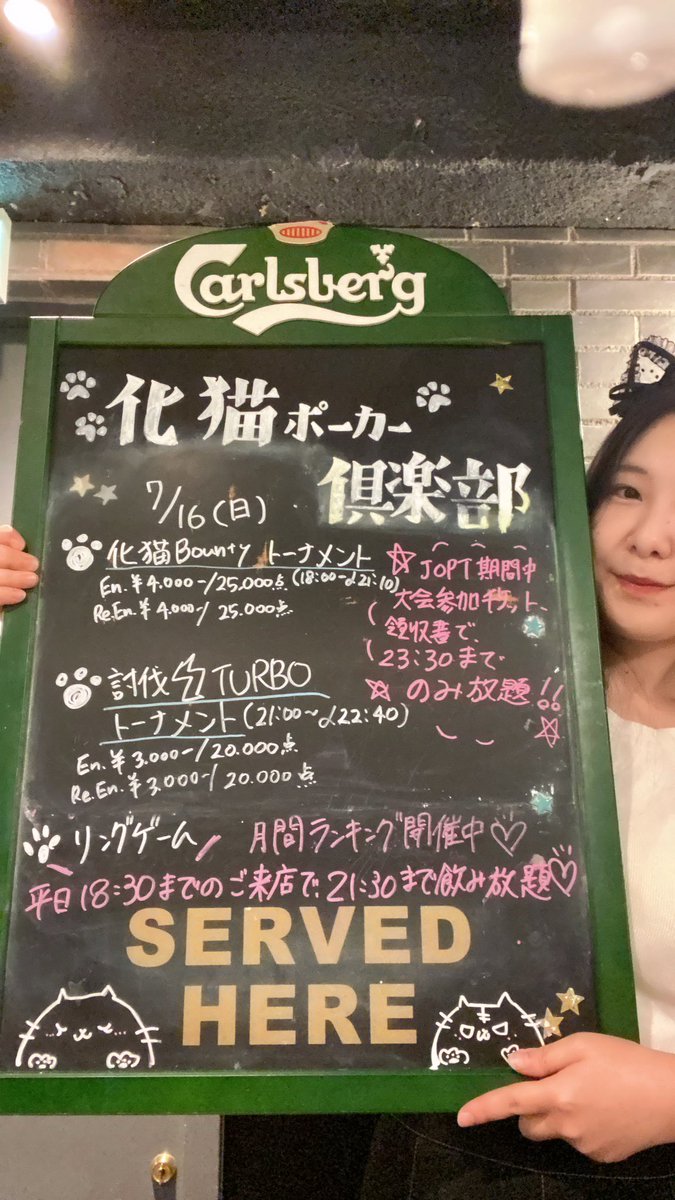 Carlsberg
化猫ポーカー
倶楽部
7/16(日)
化猫Bountyトーナメント
En.¥4.000-/25.000点(18:00~〆21:10)
Re.En.¥4.000-/25.000点
JOPT期間中
大会参加チケット、
領収書で、
23:30まで
のみ放題!!
討伐TURBO
トーナメント(21:00~〆22:40)
En.¥3.000-/20.000点
Re.En.¥3.000-/20.000点
リングゲーム 月間ランキング開催中♡
平日18:30までのご来店で、21:30まで飲み放題♡
SERVED
HERE